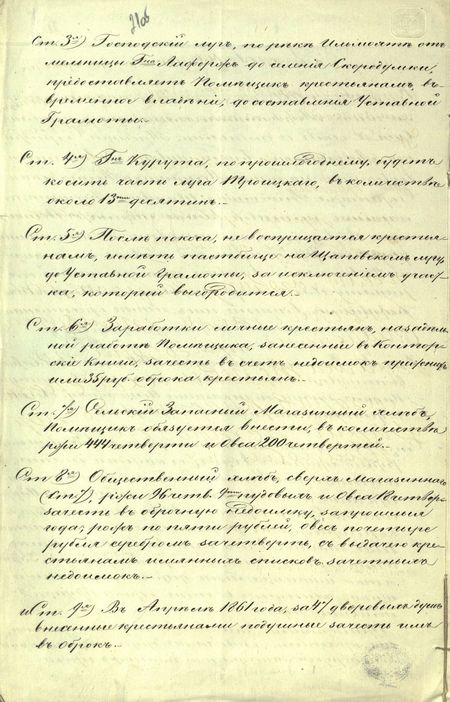 21об
Ст. 3я) Господскій лугъ, по рѣкѣ Ильмоять отъ
мельницы до селенія Скородумки,
предоставляетъ Помѣщикъ крестьянамъ, въ
временное владѣніе, до составленія Уставной
Грамоты.-
Ст. 4я) Гнъ Курута, по прошлогоднему, будетъ
косить часть луга Троицкаго, въ количествѣ
около 13ти десятинъ.-
Ст. 5я) Послѣ покоса, не воспрещается крестья-
намъ, имѣть пастбище на лугу,
до Уставной Грамоты, за исключеніемъ участ-
ка, который выгородится.-
Ст. 6я) Заработки личные крестьянъ, на
ной работѣ Помѣщика, занесенные въ Контор-
скія Книги, зачесть въ счетъ недоимокъ
или 35 руб. оброка крестьянъ.-
Ст. 7я) Сельскій Запасный Магазинный хлѣбъ,
Помѣщикъ обязуется внести, въ количествѣ
ржи 444 четверти и Овса 200 четвертей.-
Ст 8я) Общественный хлѣбъ, сверхъ Магазиннаго
(ст 7), ржи 96 четв. пудовыхъ и Овса четвер.
зачесть въ оброчную Недоимку, за прошлыя
года; рожь по пяти рублей, овесъ по четыре
рубля серебромъ за четверть, съ выдачею кре-
стьянамъ имянныхъ списковъ зачетныхъ
недоимокъ.-
и Ст. 9я) Въ Апрѣлѣ 1861 года, за 47 дворовыхъ душъ
внесенные крестьянами подушные зачесть имъ
въ Оброкъ.-